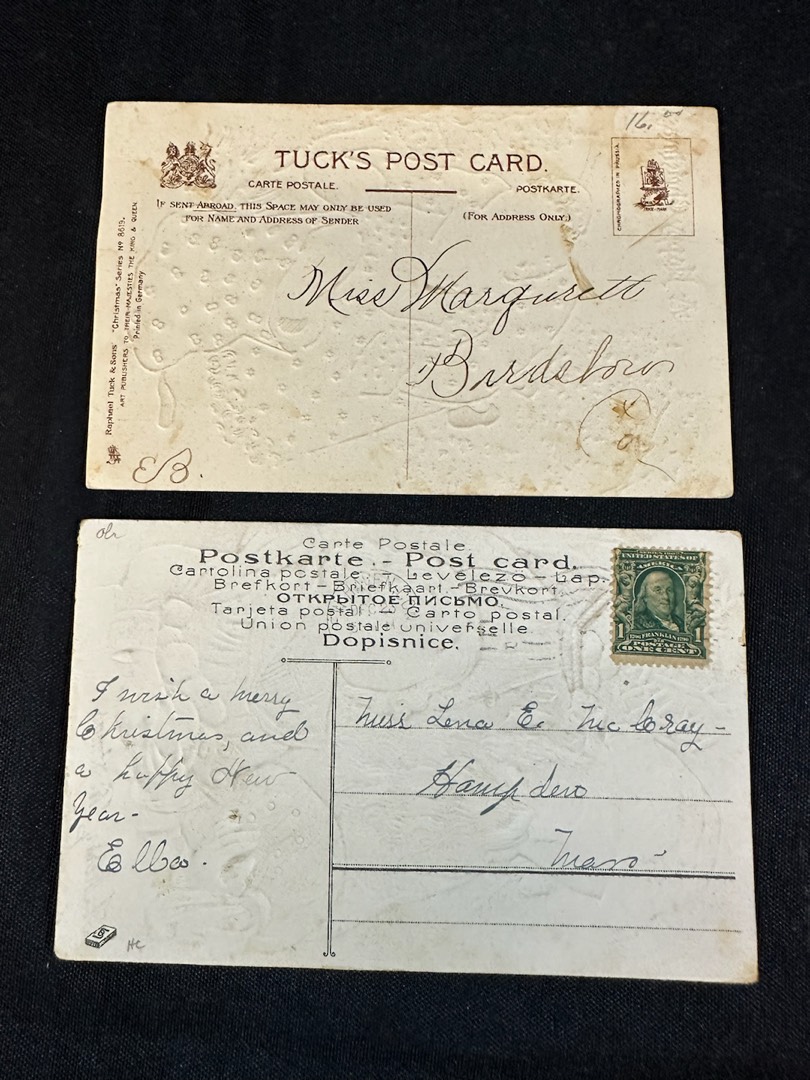 16.00
TUCK'S POST CARD.
CARTE POSTALE.
POSTKARTE.
IF SENT ABROAD, THIS SPACE MAY ONLY BE USED
FOR NAME AND ADDRESS OF SENDER
(FOR ADDRESS ONLY.)
CHROMOGRAPHED IN PRUSSIA.
Raphael Tuck & Sons' "Christmas" Series No 8619.
ART PUBLISHERS TO THEIR MAJESTIES THE KING & QUEEN.
Printed in Germany
Miss Margurett
Birdsboro
EB.
Carte Postale
Postkarte. - Post card.
Cartolina postale - Levelezo - Lap.
Brefkort - Briefkaart - Brevkort.
ОТКРЫТОЕ ПИСЬМО.
Tarjeta postal - Carto postal.
Union postale universelle
Dopisnice.
UNITED STATES OF
AMERICA
1 FRANKLIN 1
POSTAGE
ONE CENT
I wish a merry
Christmas, and
a happy New
Year-
Ella.
Miss Lena E. McCray-
Hampden
Mass-
HC